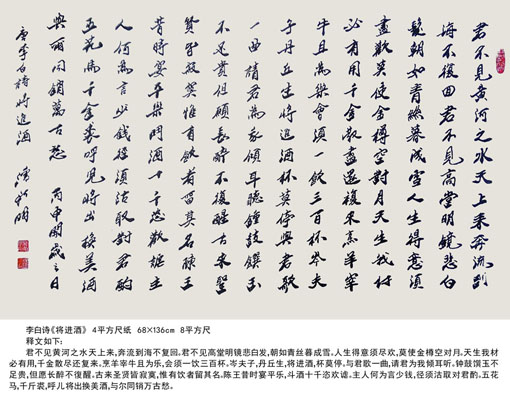 君不见黄河之水天上来奔流到
海不復回君不见高堂明镜悲白
髮朝如青丝暮成雪人生得意须
盡歡莫使金樽空对月天生我材
必有用千金散盡還復来烹羊宰
牛且為樂會须一飲三百杯岑夫
子丹丘生将進酒杯莫停與君歌
一曲請君為我傾耳聽鐘鼓饌玉
不足貴但願長醉不復醒古来聖
贤皆寂寞惟有飲者留其名陳王
昔時宴平樂斗酒十千恣歡謔主
人何為言少錢徑须沽取对君酌
五花馬千金裘呼兒将出换美酒
與尔同销萬古愁 丙申開歲之日
唐李白诗将進酒
李白诗《将进酒》 4平方尺纸 68×136cm 8平方尺
释文如下：
君不见黄河之水天上来,奔流到海不复回。君不见高堂明镜悲白发,朝如青丝暮成雪。人生得意须尽欢,莫使金樽空对月。天生我材
必有用,千金散尽还复来。烹羊宰牛且为乐,会须一饮三百杯。岑夫子,丹丘生,将进酒,杯莫停。与君歌一曲,请君为我倾耳听。钟鼓馔玉不
足贵,但愿长醉不復醒。古来圣贤皆寂寞,惟有饮者留其名。陈王昔时宴平乐,斗酒十千恣欢谑。主人何为言少钱,径须沽取对君酌。五花
马,千斤裘,呼儿将出换美酒,与尔同销万古愁。